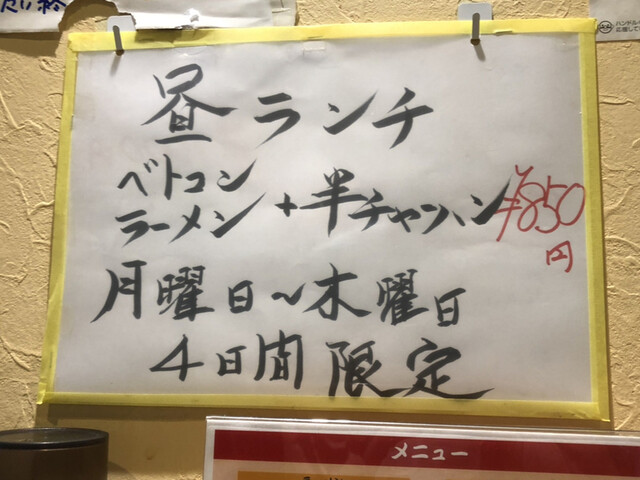 昼ランチ
ベトコン
ラーメン+半チャンハン ¥850
円
月曜日~木曜日
4日間限定
メニュー